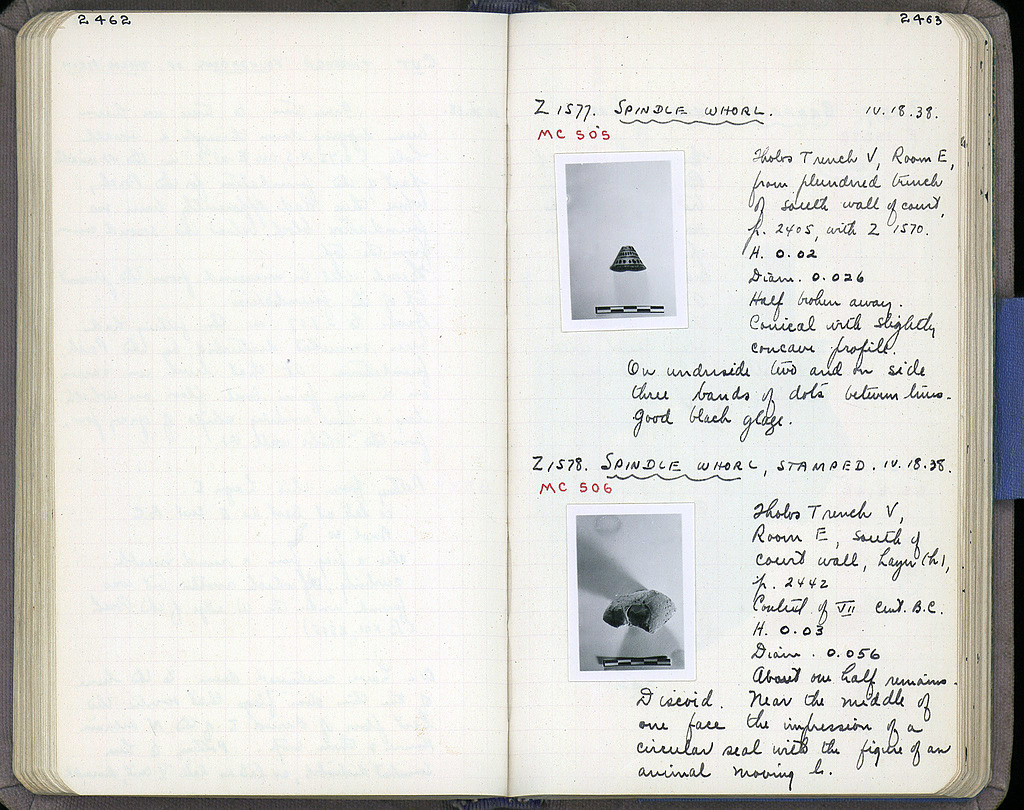 2462
2463
Z 1577. SPINDLE WHORL. IV.18.38.
MC 505
Tholos Trench V, Room E,
from plundred trench
of south wall of court,
p. 2405, with Z 1570.
H. 0.02
Diam. 0.026
Half broken away.
Conical with slightly
concave profile.
On underside two and on side
three bands of dots between lines.
Good black glaze.
Z 1578. SPINDLE WHORL, STAMPED. IV.18.38.
MC 506
Tholos Trench V,
Room E, south of
court wall, Layer (h),
p. 2442
Context of VII cent. B.C.
H. 0.03
Diam. 0.056
About one half remains.
Discoid. Near the middle of
one face the impression of a
circular seal with the figure of an
animal moving l.